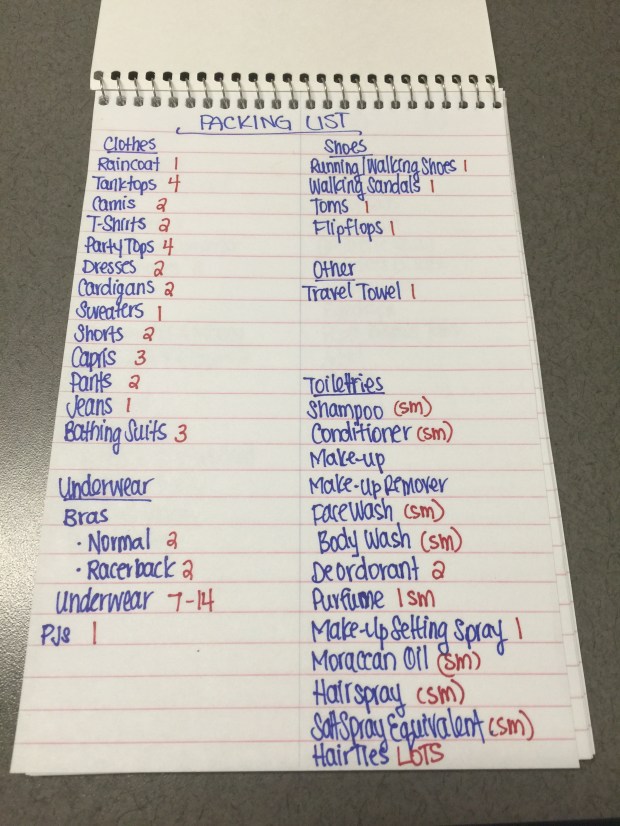 PACKING LIST
Clothes
Raincoat 1
Tanktops 4
Camis 2
T-Shirts 2
Party Tops 4
Dresses 2
Cardigans 2
Sweaters 1
Shorts 2
Capris 3
Pants 2
Jeans 1
Bathing Suits 3
Underwear
Bras
• Normal 2
• Racerback 2
Underwear 7-14
PJs 1
Shoes
Running/Walking Shoes 1
Walking Sandals 1
Toms 1
Flipflops 1
Other
Travel Towel 1
Toilettries
Shampoo (sm)
Conditioner (sm)
Make-up
Make-up Remover
Face Wash (sm)
Body Wash (sm)
Deordorant 2
Purfume 1 sm
Make-Up Setting Spray 1
Moraccan Oil (sm)
Hairspray (sm)
Salt Spray Equivalent (sm)
Hairties LOTS